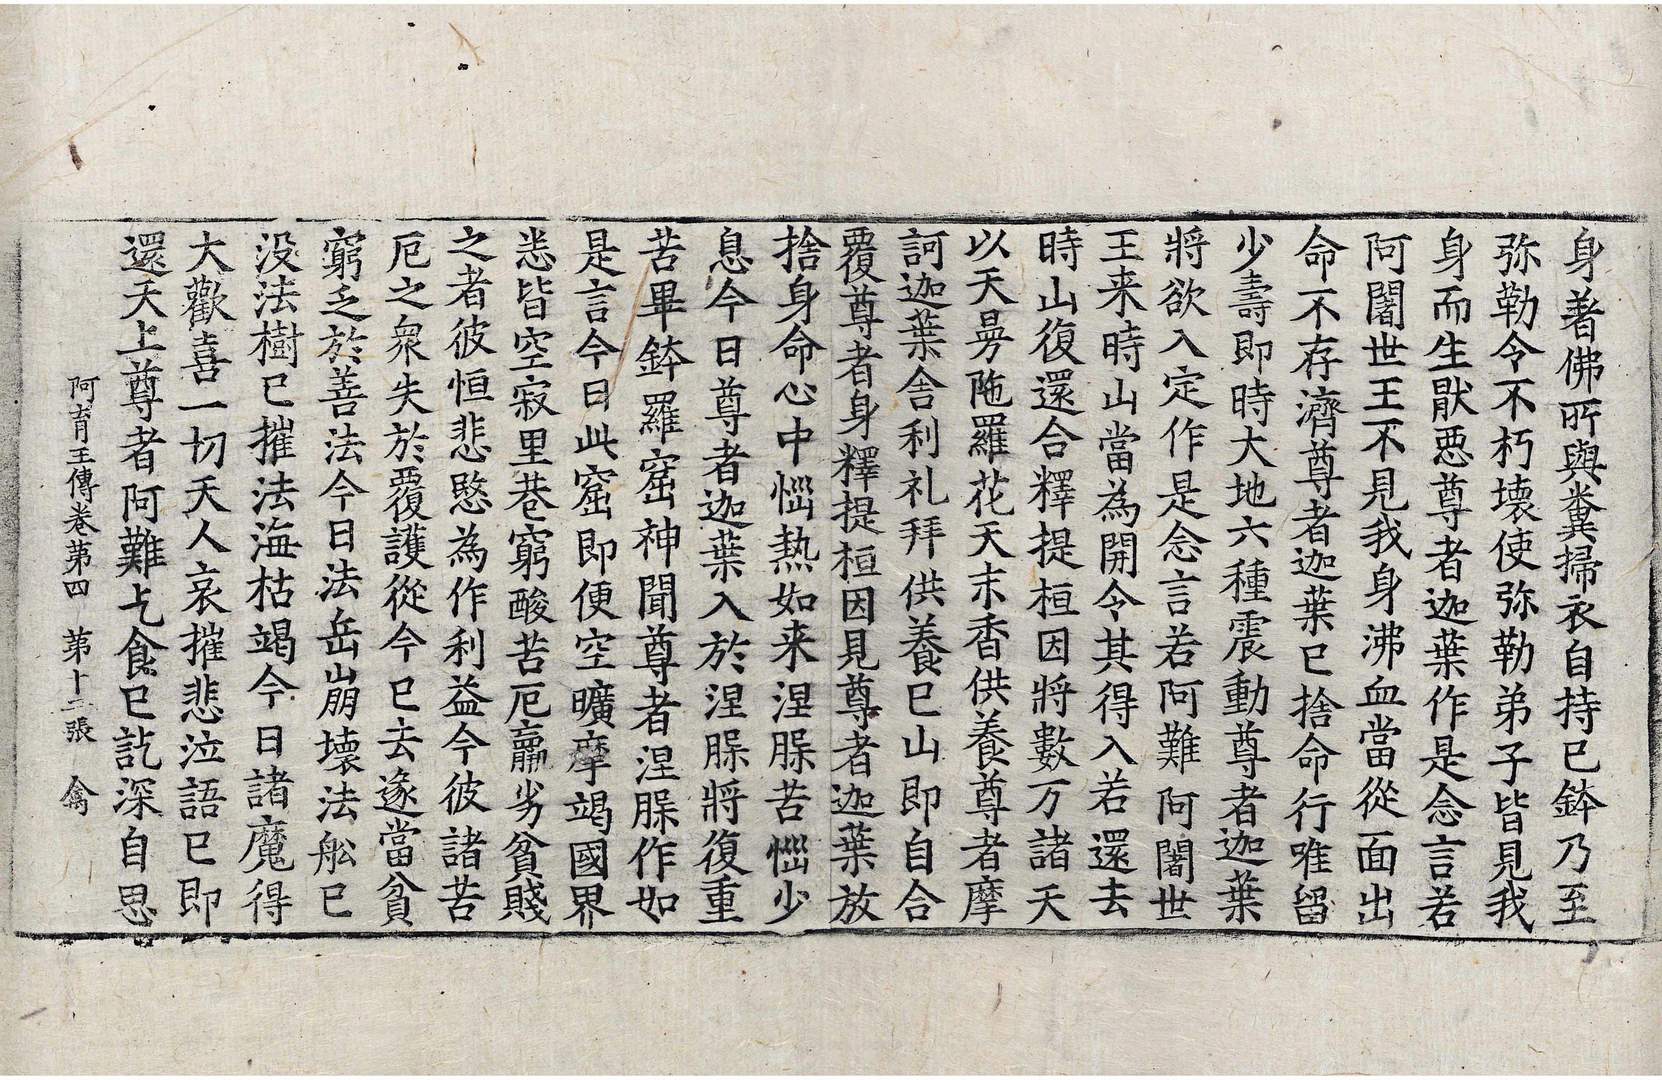 身著佛所與糞掃衣自持已鉢乃至
弥勒令不朽壞使弥勒弟子皆見我
身而生猒惡尊者迦葉作是念言若
阿闍世王不見我身沸血當從面出
命不存濟尊者迦葉已捨命行唯留
少壽即時大地六種震動尊者迦葉
將欲入定作是念言若阿難阿闍世
王来時山當為開令其得入若還去
時山復還合釋提桓因將數万諸天
以天曼陁羅花天末香供養尊者摩
訶迦葉舍利礼拜供養已山即自合
覆尊者身釋提桓因見尊者迦葉放
捨身命心中惱热如来涅脲苦惱少
息今日尊者迦葉入於涅脲將復重
苦畢鉢羅窟神聞尊者涅脲作如
是言今日此窟即便空曠摩竭國界
悉皆空寂里巷窮酸苦厄羸劣貧賤
之者彼恒悲愍為作利益今彼諸苦
厄之衆失於覆護從今已去遂當貧
窮乏於善法今日法岳崩壞法舩已
没法樹已摧法海枯竭今日諸魔得
大歡喜一切天人哀摧悲泣語已即
還天上尊者阿難乞食已訖深自思
阿育王傳卷第四 第十二張 禽